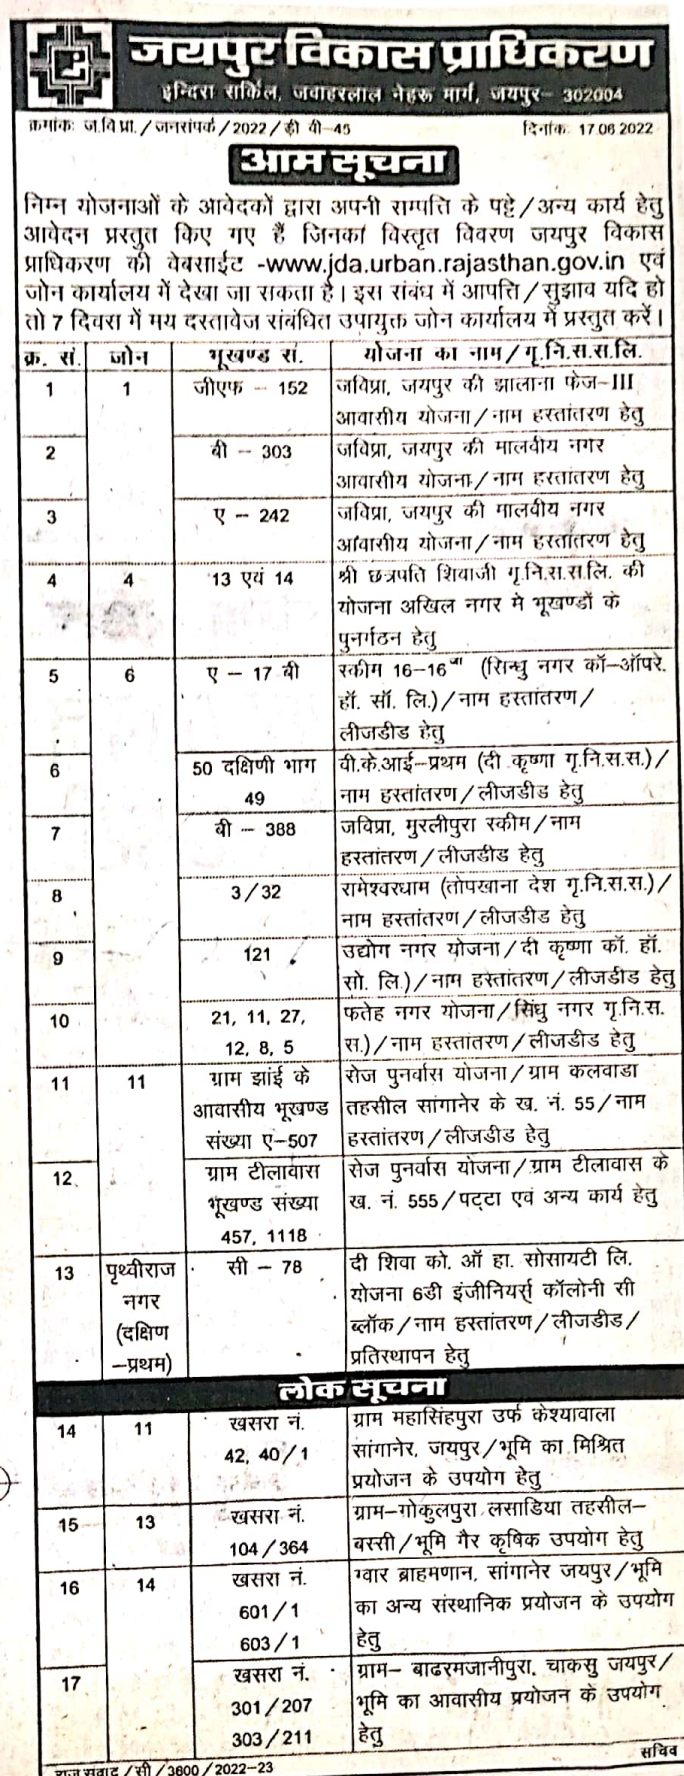 जयपुर विकास प्राधिकरण
इन्दिरा सर्किल, जवाहरलाल नेहरू मार्ग, जयपुर- 302004
क्रमांकः ज.वि.प्रा./जनसंपर्क/2022/डी वी-45 दिनांकः 17.06.2022
आम सूचना
निम्न योजनाओं के आवेदकों द्वारा अपनी सम्पत्ति के पट्टे/अन्य कार्य हेतु
आवेदन प्रस्तुत किए गए हैं जिनका विस्तृत विवरण जयपुर विकास
प्राधिकरण की वेबसाईट -www.jda.urban.rajasthan.gov.in एवं
जोन कार्यालय में देखा जा सकता है। इस संबंध में आपत्ति/सुझाव यदि हो
तो 7 दिवस में मय दस्तावेज संबंधित उपायुक्त जोन कार्यालय में प्रस्तुत करें।
क्र. सं. जोन भूखण्ड सं. योजना का नाम/गृ.नि.स.स.लि.
1 1 जीएफ - 152 जविप्रा, जयपुर की झालाना फेज-III
आवासीय योजना/नाम हस्तांतरण हेतु
2 बी - 303 जविप्रा, जयपुर की मालवीय नगर
आवासीय योजना/नाम हस्तांतरण हेतु
3 ए - 242 जविप्रा, जयपुर की मालवीय नगर
आवासीय योजना/नाम हस्तांतरण हेतु
4 4 13 एवं 14 श्री छत्रपति शिवाजी गृ.नि.स.स.लि. की
योजना अखिल नगर मे भूखण्डों के
पुनर्गठन हेतु
5 6 ए - 17 बी स्कीम 16-16 (सिन्धु नगर कॉ-ऑपरे.
हॉ. सॉ. लि.)/नाम हस्तांतरण/
लीजडीड हेतु
6 50 दक्षिणी भाग वी.के.आई-प्रथम (दी कृष्णा गृ.नि.स.स.)/
49 नाम हस्तांतरण/लीजडीड हेतु
7 बी - 388 जविप्रा, मुरलीपुरा स्कीम/नाम
हस्तांतरण/लीजडीड हेतु
8 3/32 रामेश्वरधाम (तोपखाना देश गृ.नि.स.स.)/
नाम हस्तांतरण/लीजडीड हेतु
9 121 उद्योग नगर योजना/दी कृष्णा कॉ. हॉ.
सो. लि.)/नाम हस्तांतरण/लीजडीड हेतु
10 21, 11, 27, फतेह नगर योजना/सिंधु नगर गृ.नि.स.
12, 8, 5 स.)/नाम हस्तांतरण/लीजडीड हेतु
11 11 ग्राम झांई के सेज पुनर्वास योजना/ग्राम कलवाडा
आवासीय भूखण्ड तहसील सांगानेर के ख. नं. 55/नाम
संख्या ए-507 हस्तांतरण/लीजडीड हेतु
12 ग्राम टीलावास सेज पुनर्वास योजना/ग्राम टीलावास के
भूखण्ड संख्या ख. नं. 555/पट्टा एवं अन्य कार्य हेतु
457, 1118
13 पृथ्वीराज सी - 78 दी शिवा को. ऑ हा. सोसायटी लि.
नगर योजना 6डी इंजीनियर्स् कॉलोनी सी
(दक्षिण ब्लॉक/नाम हस्तांतरण/लीजडीड/
-प्रथम) प्रतिस्थापन हेतु
लोक सूचना
14 11 खसरा नं. ग्राम महासिंहपुरा उर्फ केश्यावाला
42, 40/1 सांगानेर, जयपुर/भूमि का मिश्रित
प्रयोजन के उपयोग हेतु
15 13 खसरा नं. ग्राम-गोकुलपुरा लसाडिया तहसील-
104/364 बस्सी/भूमि गैर कृषिक उपयोग हेतु
16 14 खसरा नं. ग्वार ब्राहमणान, सांगानेर जयपुर/भूमि
601/1 का अन्य संस्थानिक प्रयोजन के उपयोग
603/1 हेतु
17 खसरा नं. ग्राम- बाढरमजानीपुरा, चाकसु जयपुर/
301/207 भूमि का आवासीय प्रयोजन के उपयोग
303/211 हेतु
सचिव
राज.संवाद/सी/3600/2022-23